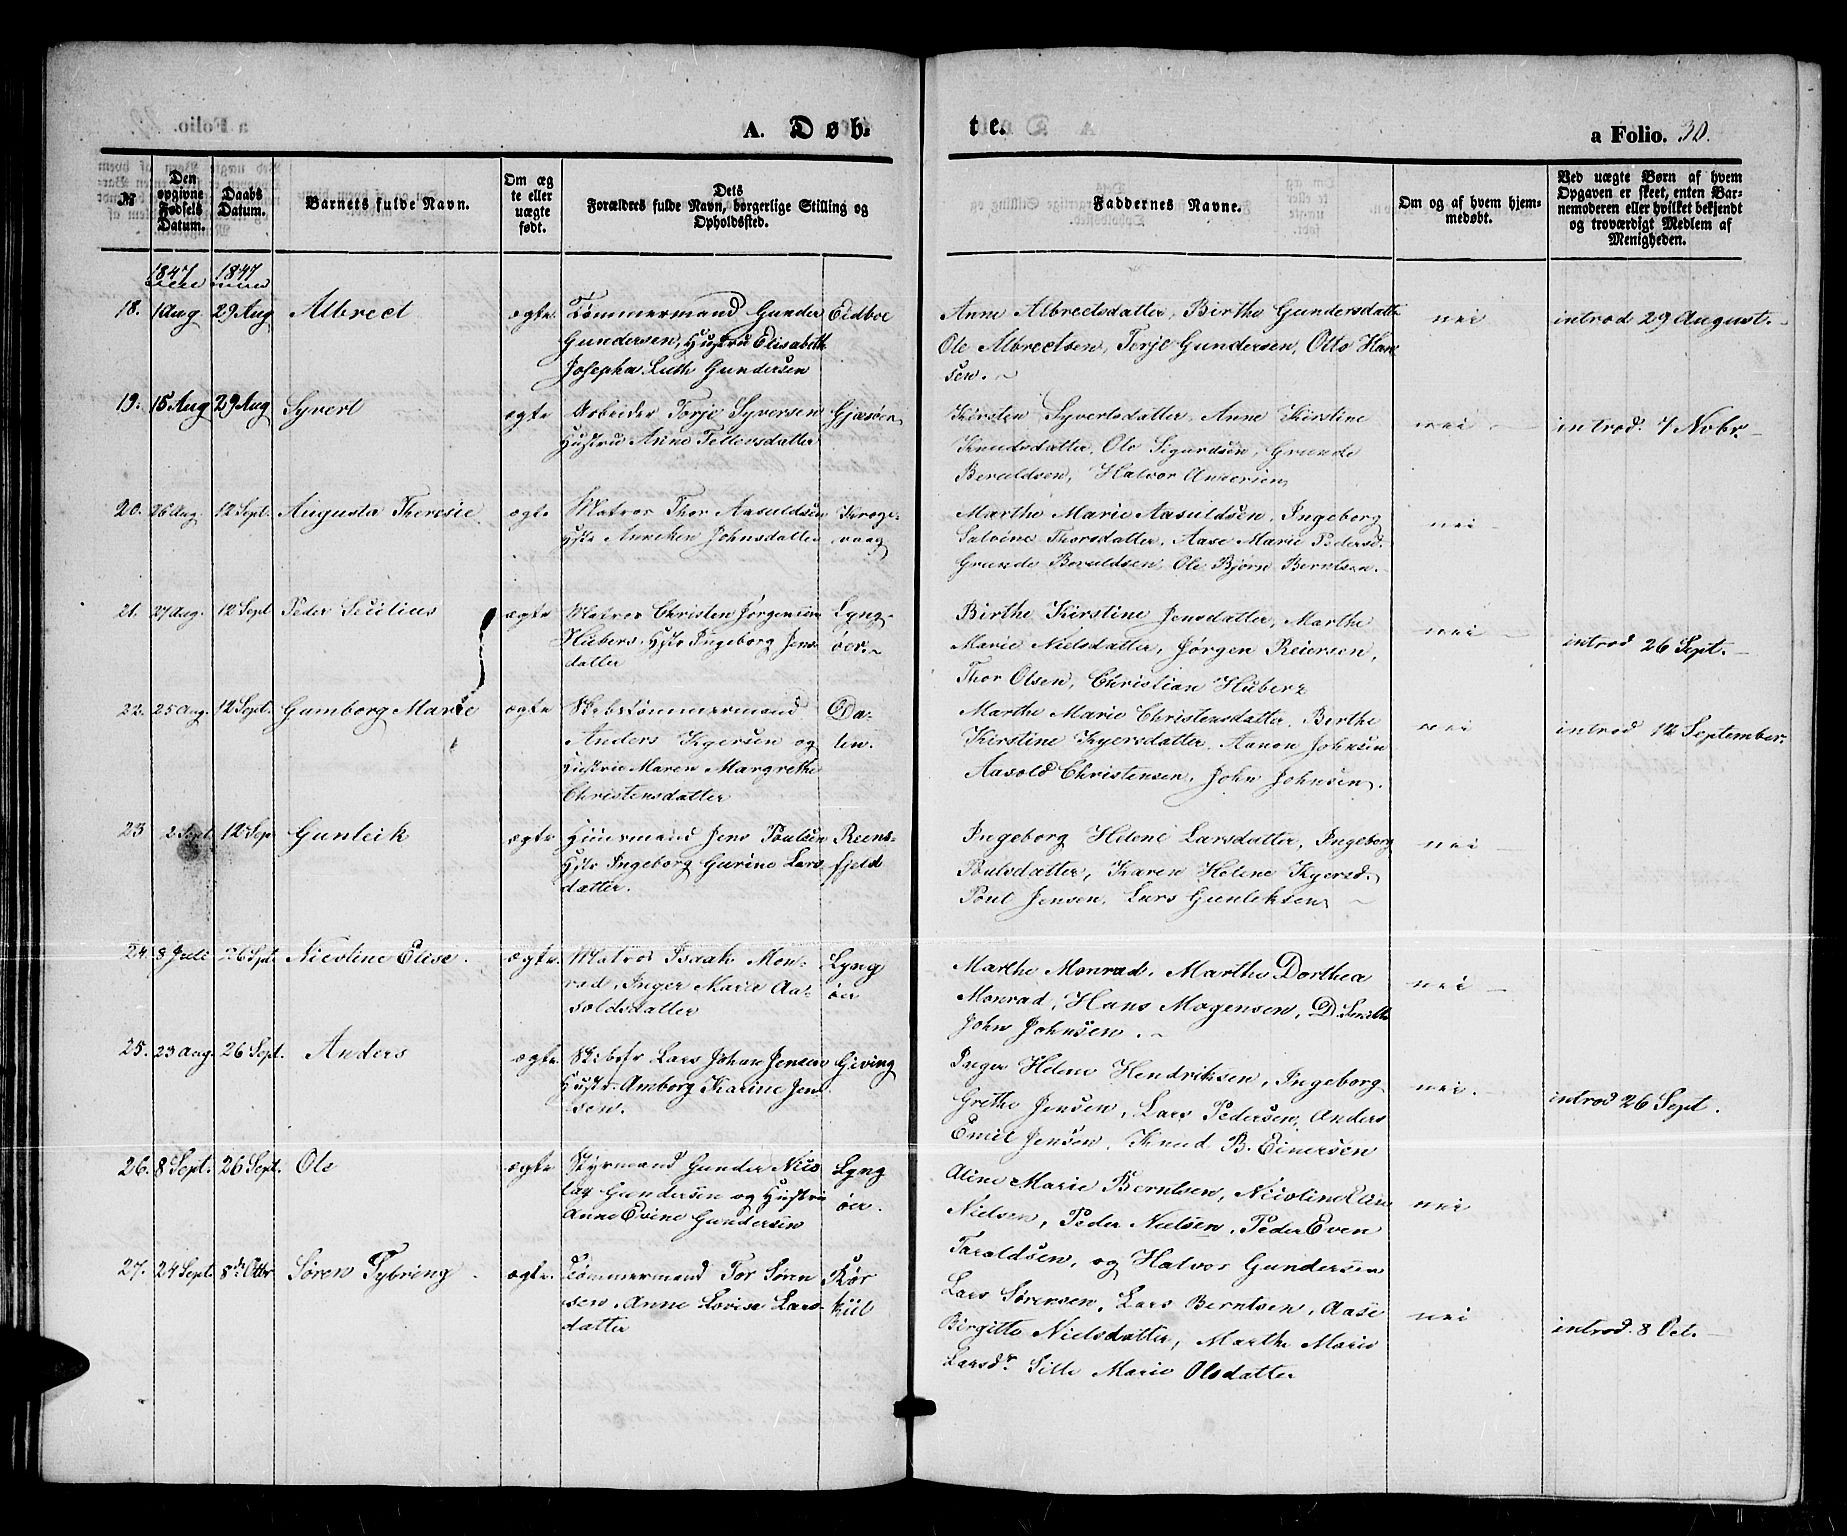 A. Døb-
te.
a Folio. 30.
№
Den opgivne Fødsels Datum.
Daabs Datum.
Barnets fulde Navn.
Om ægte eller uægte født.
Dets Forældres fulde Navn, borgerlige Stilling og Opholdssted.
Faddernes Navne.
Om og af hvem hjemmedøbt.
Ved uægte Børn af hvem Opgaven er skeet, enten Barnemoderen eller hvilket bekjendt og troværdigt Medlem af Menigheden.
1847 1847
18. 1 Aug 29 Aug Albrect ægte Tømmermand Gunder Eidboe
Gundersen, Hustru Elisabeth
Josepha Luth Gundersen
Anne Albrectsdatter, Birthe Gundersdatter
Ole Albrectsen, Terje Gundersen, Otto Han
sen.
nei introd 29 August.
19. 15 Aug 29 Aug Syvert ægte Arbeider Torje Syversen Gjæsøen
Hustru Anne Tellevsdatter
Kirsten Syvertsdatter, Anne Kirstine
Knudsdatter, Ole Sigurdsen, Grunde
Beruldsen, Halvor
nei introd. 7 Nvbr.
20. 26 Aug 12 Sept. Augusta Theresie ægte Matros Thor Aasuldsen Kroge-
Hstr Anneken Johnsdatter vaag
Marthe Marie Aasuldsen, Ingeborg
Salvine Thorsdatter, Aase Marie Pedersd.
Grunde Beruldsen, Ole Bjørn Berntsen.
nei
21. 27 Aug. 12 Sept Peder ægte Matros Christen Jørgensen Lyng-
Hubers, Hstr Ingeborg Jens øer.
datter
Birthe Kirstine Jensdatter, Marthe
Marie Nielsdatter, Jørgen Reiersen,
Thor Olsen, Christian Huberz
nei introd 26 Sept.
22. 25 Aug. 12 Sept. Gamborg Marie ægte Skibstømmermand Da-
Anders Kyersen og len.
Hustrue Maren Margrethe
Christensdatter
Marthe Marie Christensdatter, Berthe
Kirstine Kyersdatter, Aanon Johnsen
Aasold Christensen, John Johnsen.
nei introd 12 September.
23 2 Sept. 12 Sep Gunleik ægte Huusmand Jens Poulsen Reens-
Hstr Ingeborg Gurine Lars fjeld
datter.
Ingeborg Helene Larsdatter, Ingeborg
Poulsdatter, Karen Helene Kyersd.
Poul Jensen, Lars Gunleksen
nei
24. 8 Juli 26 Spt. Nicoline Elise. ægte. Matros Isaak Mon- Lyng
rad, Inger Marie Aa- øer
soldsdatter
Marthe Monrad, Marthe Dorthea
Monrad, Hans Mogensen, D. Smith
John Johnsen.
nei
25. 23 Aug. 26 Sept. Anders ægte. Lars Johan Jensen Giving
Hustr. Amborg Karine Jen
sen.
Inger Helene Hendriksen, Ingeborg
Grethe Jensen, Lars Pedersen, Anders
Emil Jensen, Knud B. Einersen
nei. introd 26 Sept.
26. 8 Sept. 26 Sept. Ole ægte Styrmand Gunder Nico Lyng
lay Gundersen og Hustru øer.
Anne Evine Gundersen
Aline Marie Berntsen, Nicoline
Nielsen, Peder Nielsen, Peder Even
Taraldsen, og Halvor Gundersen
nei
27. 24 Sept. 8de Otbr Søren Tybring. ægte. Tømmermand Tor Søren Kør
sen, Anne Lovise Lars- kiil
datter
Lars Sørensen, Lars Berntsen, Aase
Birgitte Nielsdatter, Marthe Marie
Larsdr. Sille Marie Olsdatter
nei introd. 8 Oct.